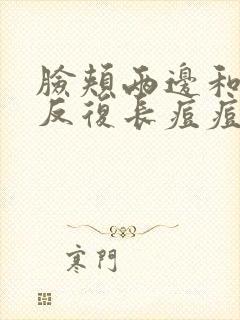 臉頰兩邊和
反復長痘痘
寒門